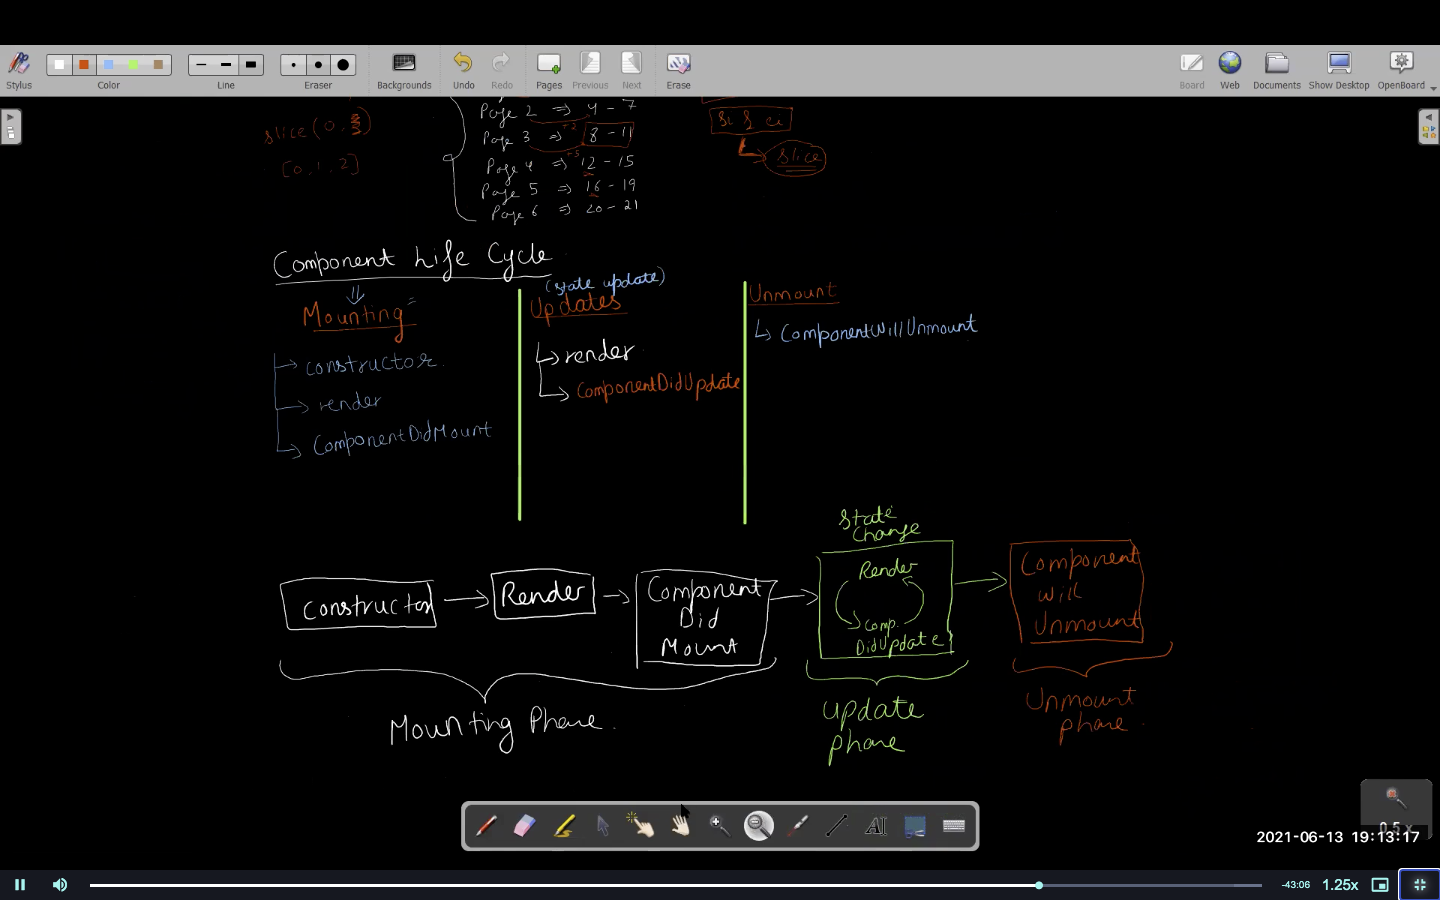 Stylus
Color
Line
Eraser
Backgrounds
Undo
Redo
Pages
Previous
Next
Erase
Board
Web
Documents
Show Desktop
OpenBoard
Page 2 => 4 - 7
Page 3 => 8 - 11
Page 4 => 12 - 15
Page 5 => 16 - 19
Page 6 => 20 - 21
slice(0, 3)
[0, 1, 2]
si & ei
slice
Component Life Cycle
Mounting
constructor
render
ComponentDidMount
(state update)
Updates
render
ComponentDidUpdate
Unmount
ComponentWillUnmount
constructor
Render
Component
Did
Mount
State
Change
Render
Comp.
DidUpdate
Component
will
Unmount
Mounting Phase.
update
phase
Unmount
phase
0.5 x
2021-06-13 19:13:17
-43:06
1.25x